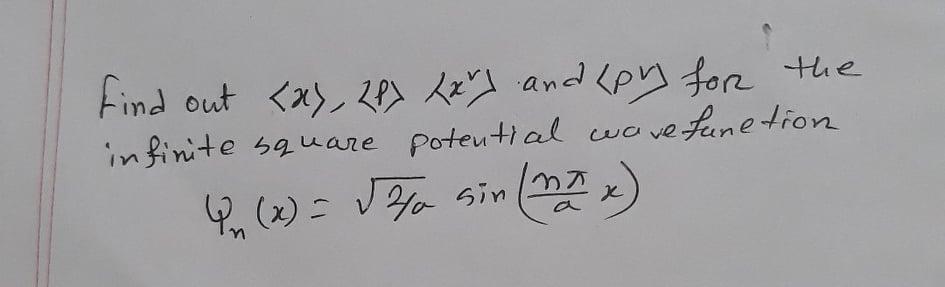 Find out <x>, <p> <x²> and <p²> for the
infinite square potential wavefunetion
φₙ(x) = √2/a sin(nπ/a x)